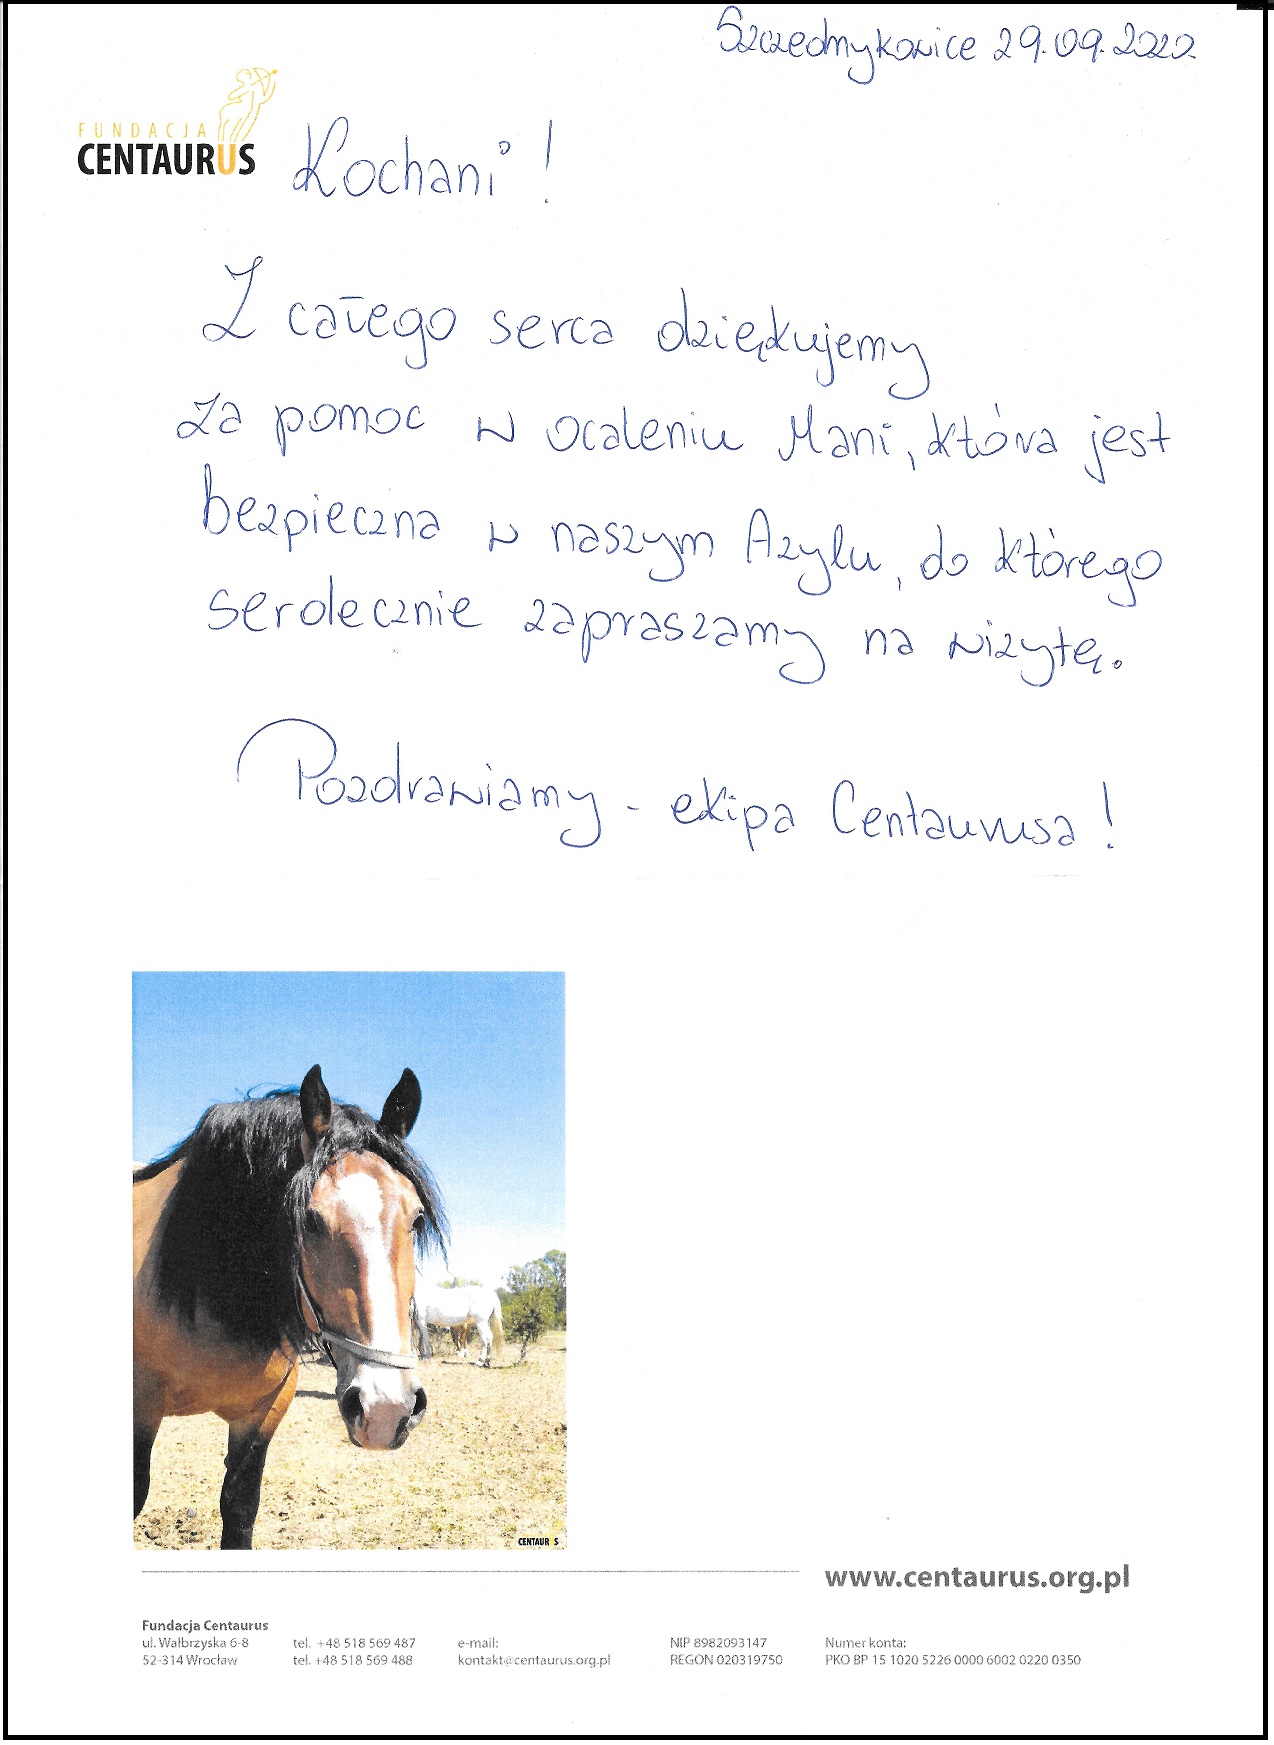 Szczedrzykowice 29.09.2020
FUNDACJA
CENTAURUS
Kochani!
Z całego serca dziękujemy
za pomoc w ocaleniu Mani, która jest
bezpieczna w naszym Azylu, do którego
serdecznie zapraszamy na wizytę.
Pozdrawiamy - ekipa Centaurusa!
CENTAUR S
www.centaurus.org.pl
Fundacja Centaurus
ul. Wałbrzyska 6-8 tel. +48 518 569 487 e-mail: NIP 8982093147 Numer konta:
52-314 Wrocław tel. +48 518 569 488 kontakt@centaurus.org.pl REGON 020319750 PKO BP 15 1020 5226 0000 6002 0220 0350